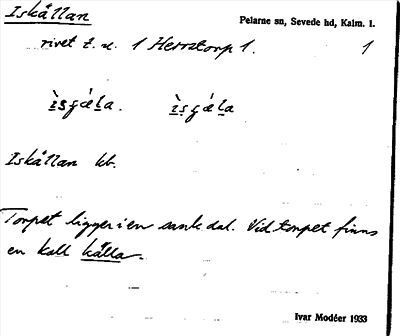 Iskällan
Pelarne sn, Sevede hd, Kalm. l.
rivet t. u. 1 Herrstorp 1.
1
Iskällan kb.
Torpet ligger i en sank dal. Vid torpet finns
en kall källa.
Ivar Modéer 1933